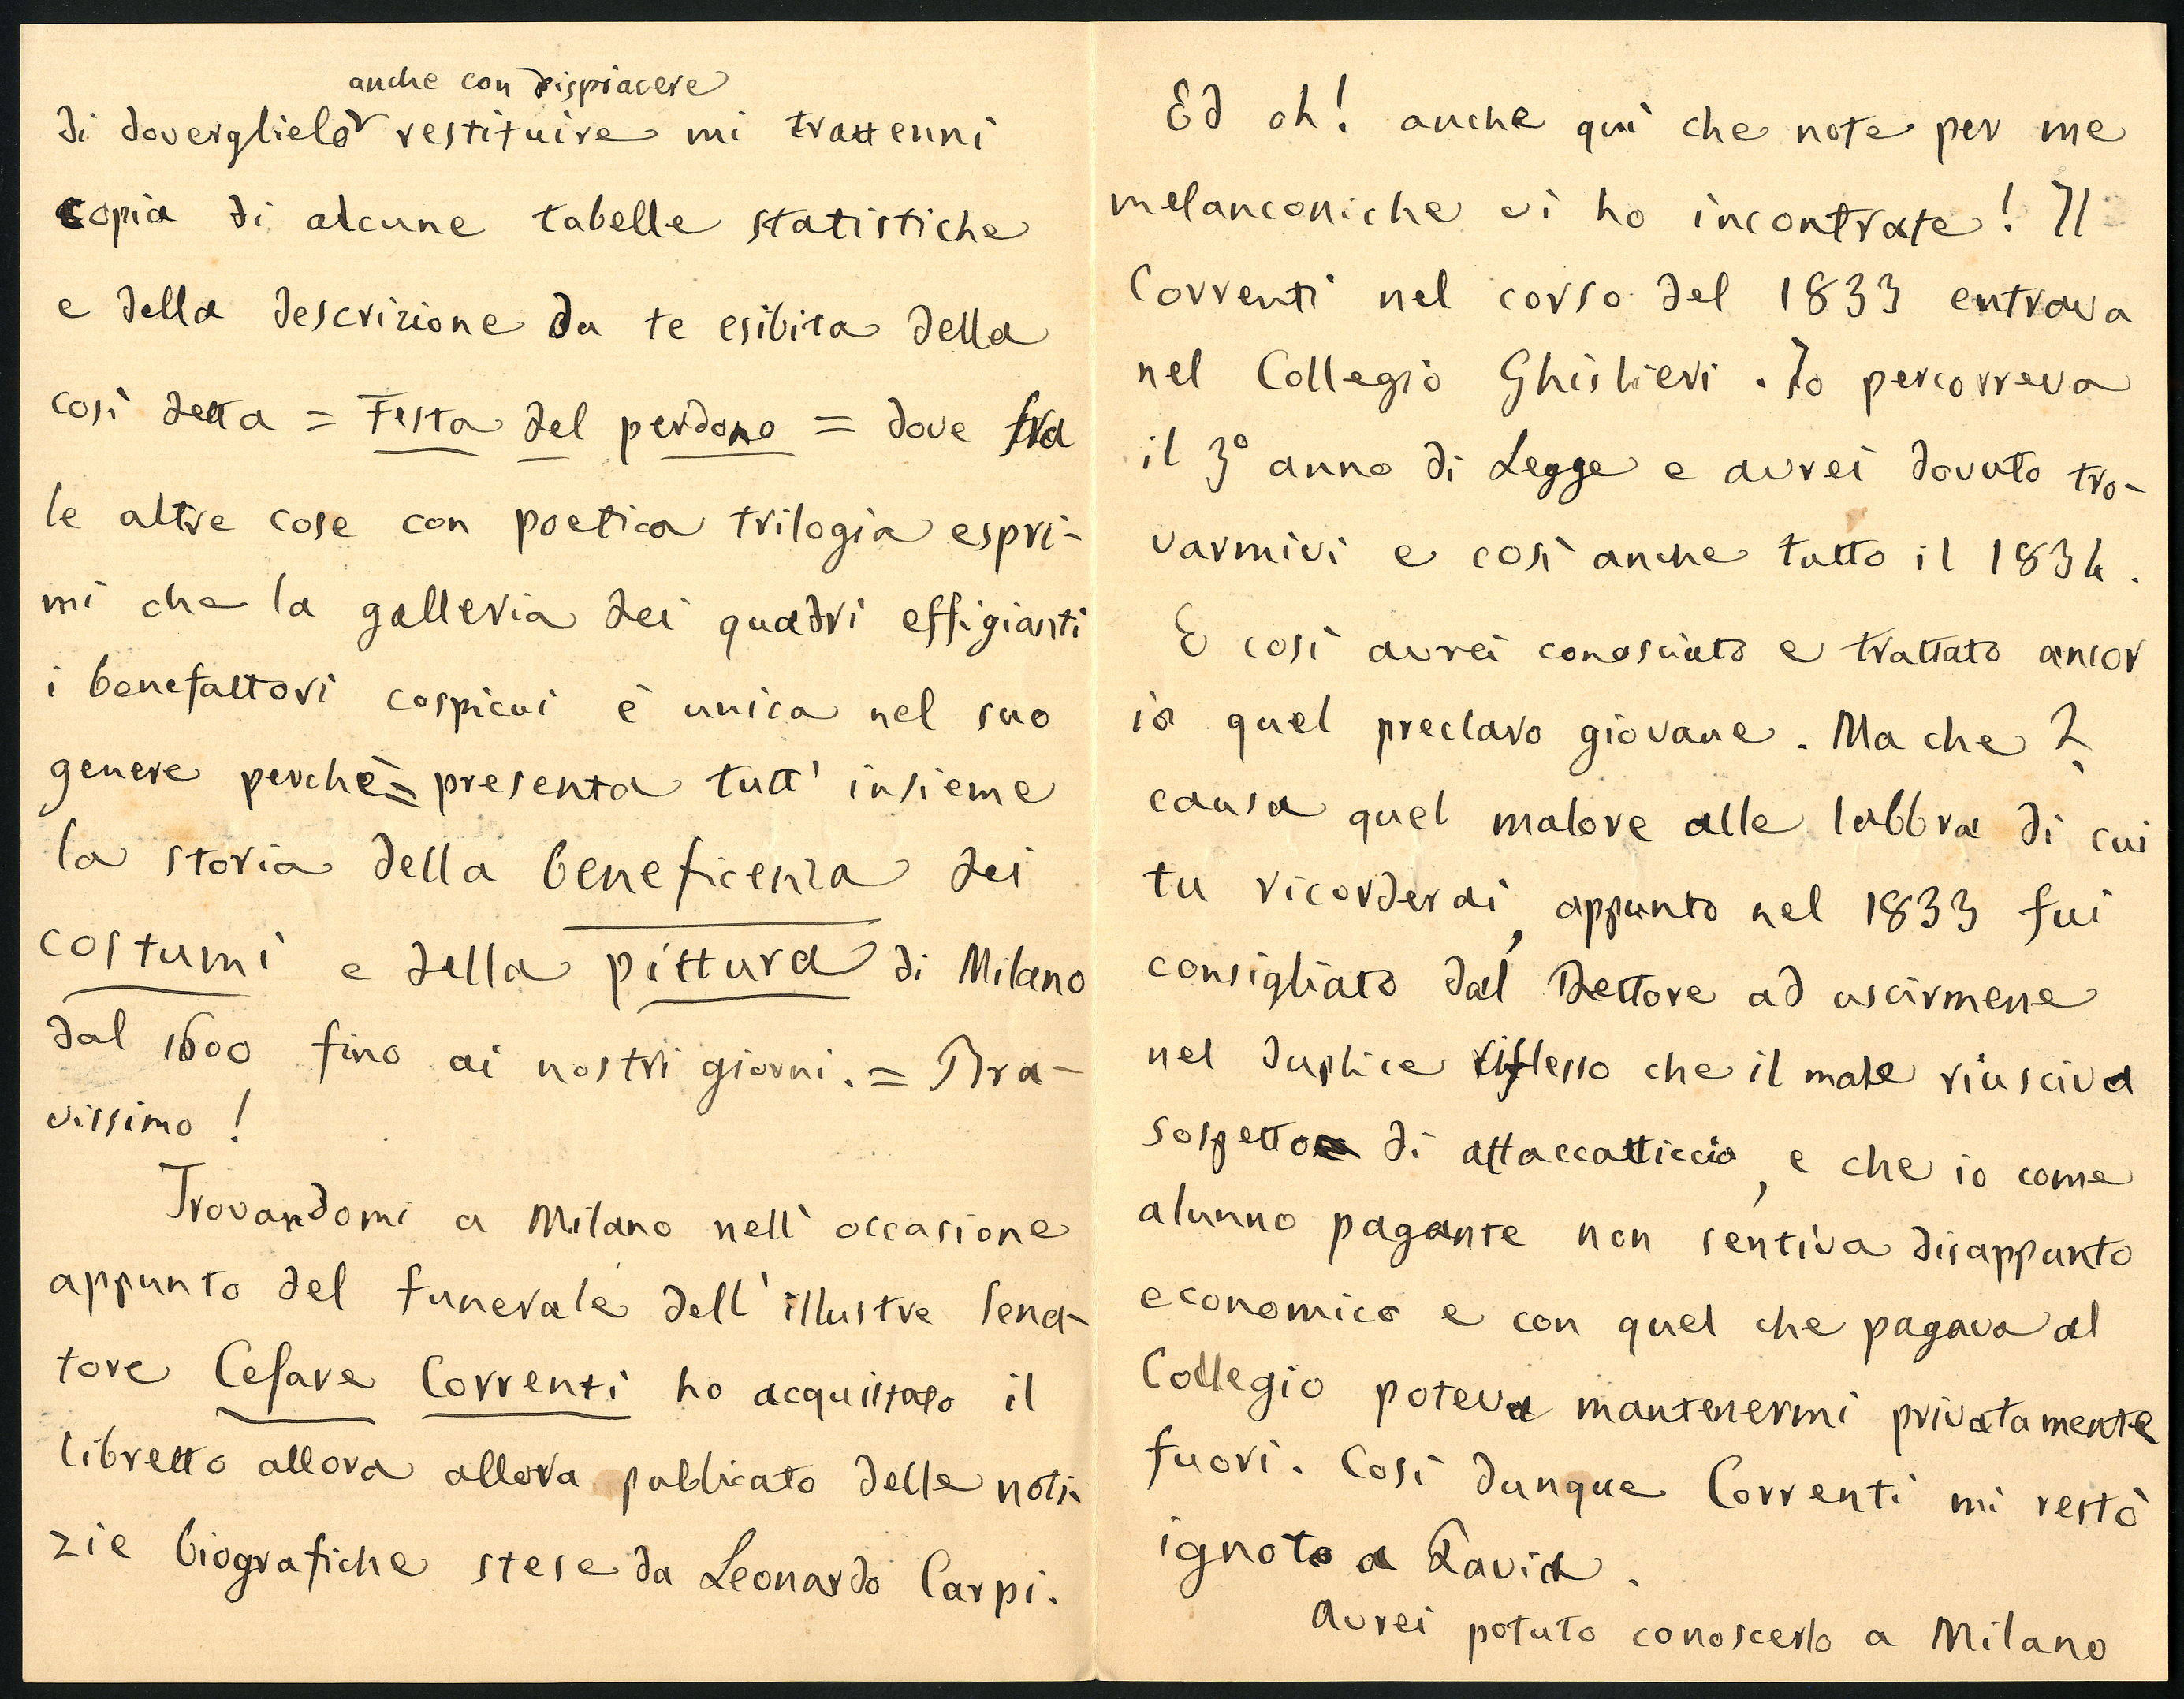 anche con dispiacere
di doverglielo restituire mi trattenni
copia di alcune tabelle statistiche
e della descrizione da te esibita della
così detta = Festa del perdono = dove fra
le altre cose con poetica trilogia espri-
mi che la galleria dei quadri effigianti
i benefattori cospicui è unica nel suo
genere perchè = presenta tutt' insieme
la storia della beneficenza dei
costumi e della pittura di Milano
dal 1600 fino ai nostri giorni. = Bra-
vissimo!
Trovandomi a Milano nell' occasione
appunto del funerale dell' illustre Sena-
tore Cesare Correnti ho acquistato il
libretto allora allora pubblicato delle noti-
zie biografiche stese da Leonardo Carpi.
Ed oh! anche qui che note per me
melanconiche vi ho incontrate! Il
Correnti nel corso del 1833 entrava
nel Collegio Ghislieri. Io percorreva
il 3º anno di Legge e avrei dovuto tro-
varmivi e così anche tutto il 1834.
E così avrei conosciuto e trattato ancor
io quel preclaro giovane. Ma che?
causa quel malore alle labbra di cui
tu ricorderai, appunto nel 1833 fui
consigliato dal Rettore ad uscirmene
nel duplice riflesso che il male riusciva
sospetto di attaccatticcio, e che io come
alunno pagante non sentiva disappunto
economico e con quel che pagava al
Collegio poteva mantenermi privatamente
fuori. Così dunque Correnti mi restò
ignoto a Pavia.
Avrei potuto conoscerlo a Milano